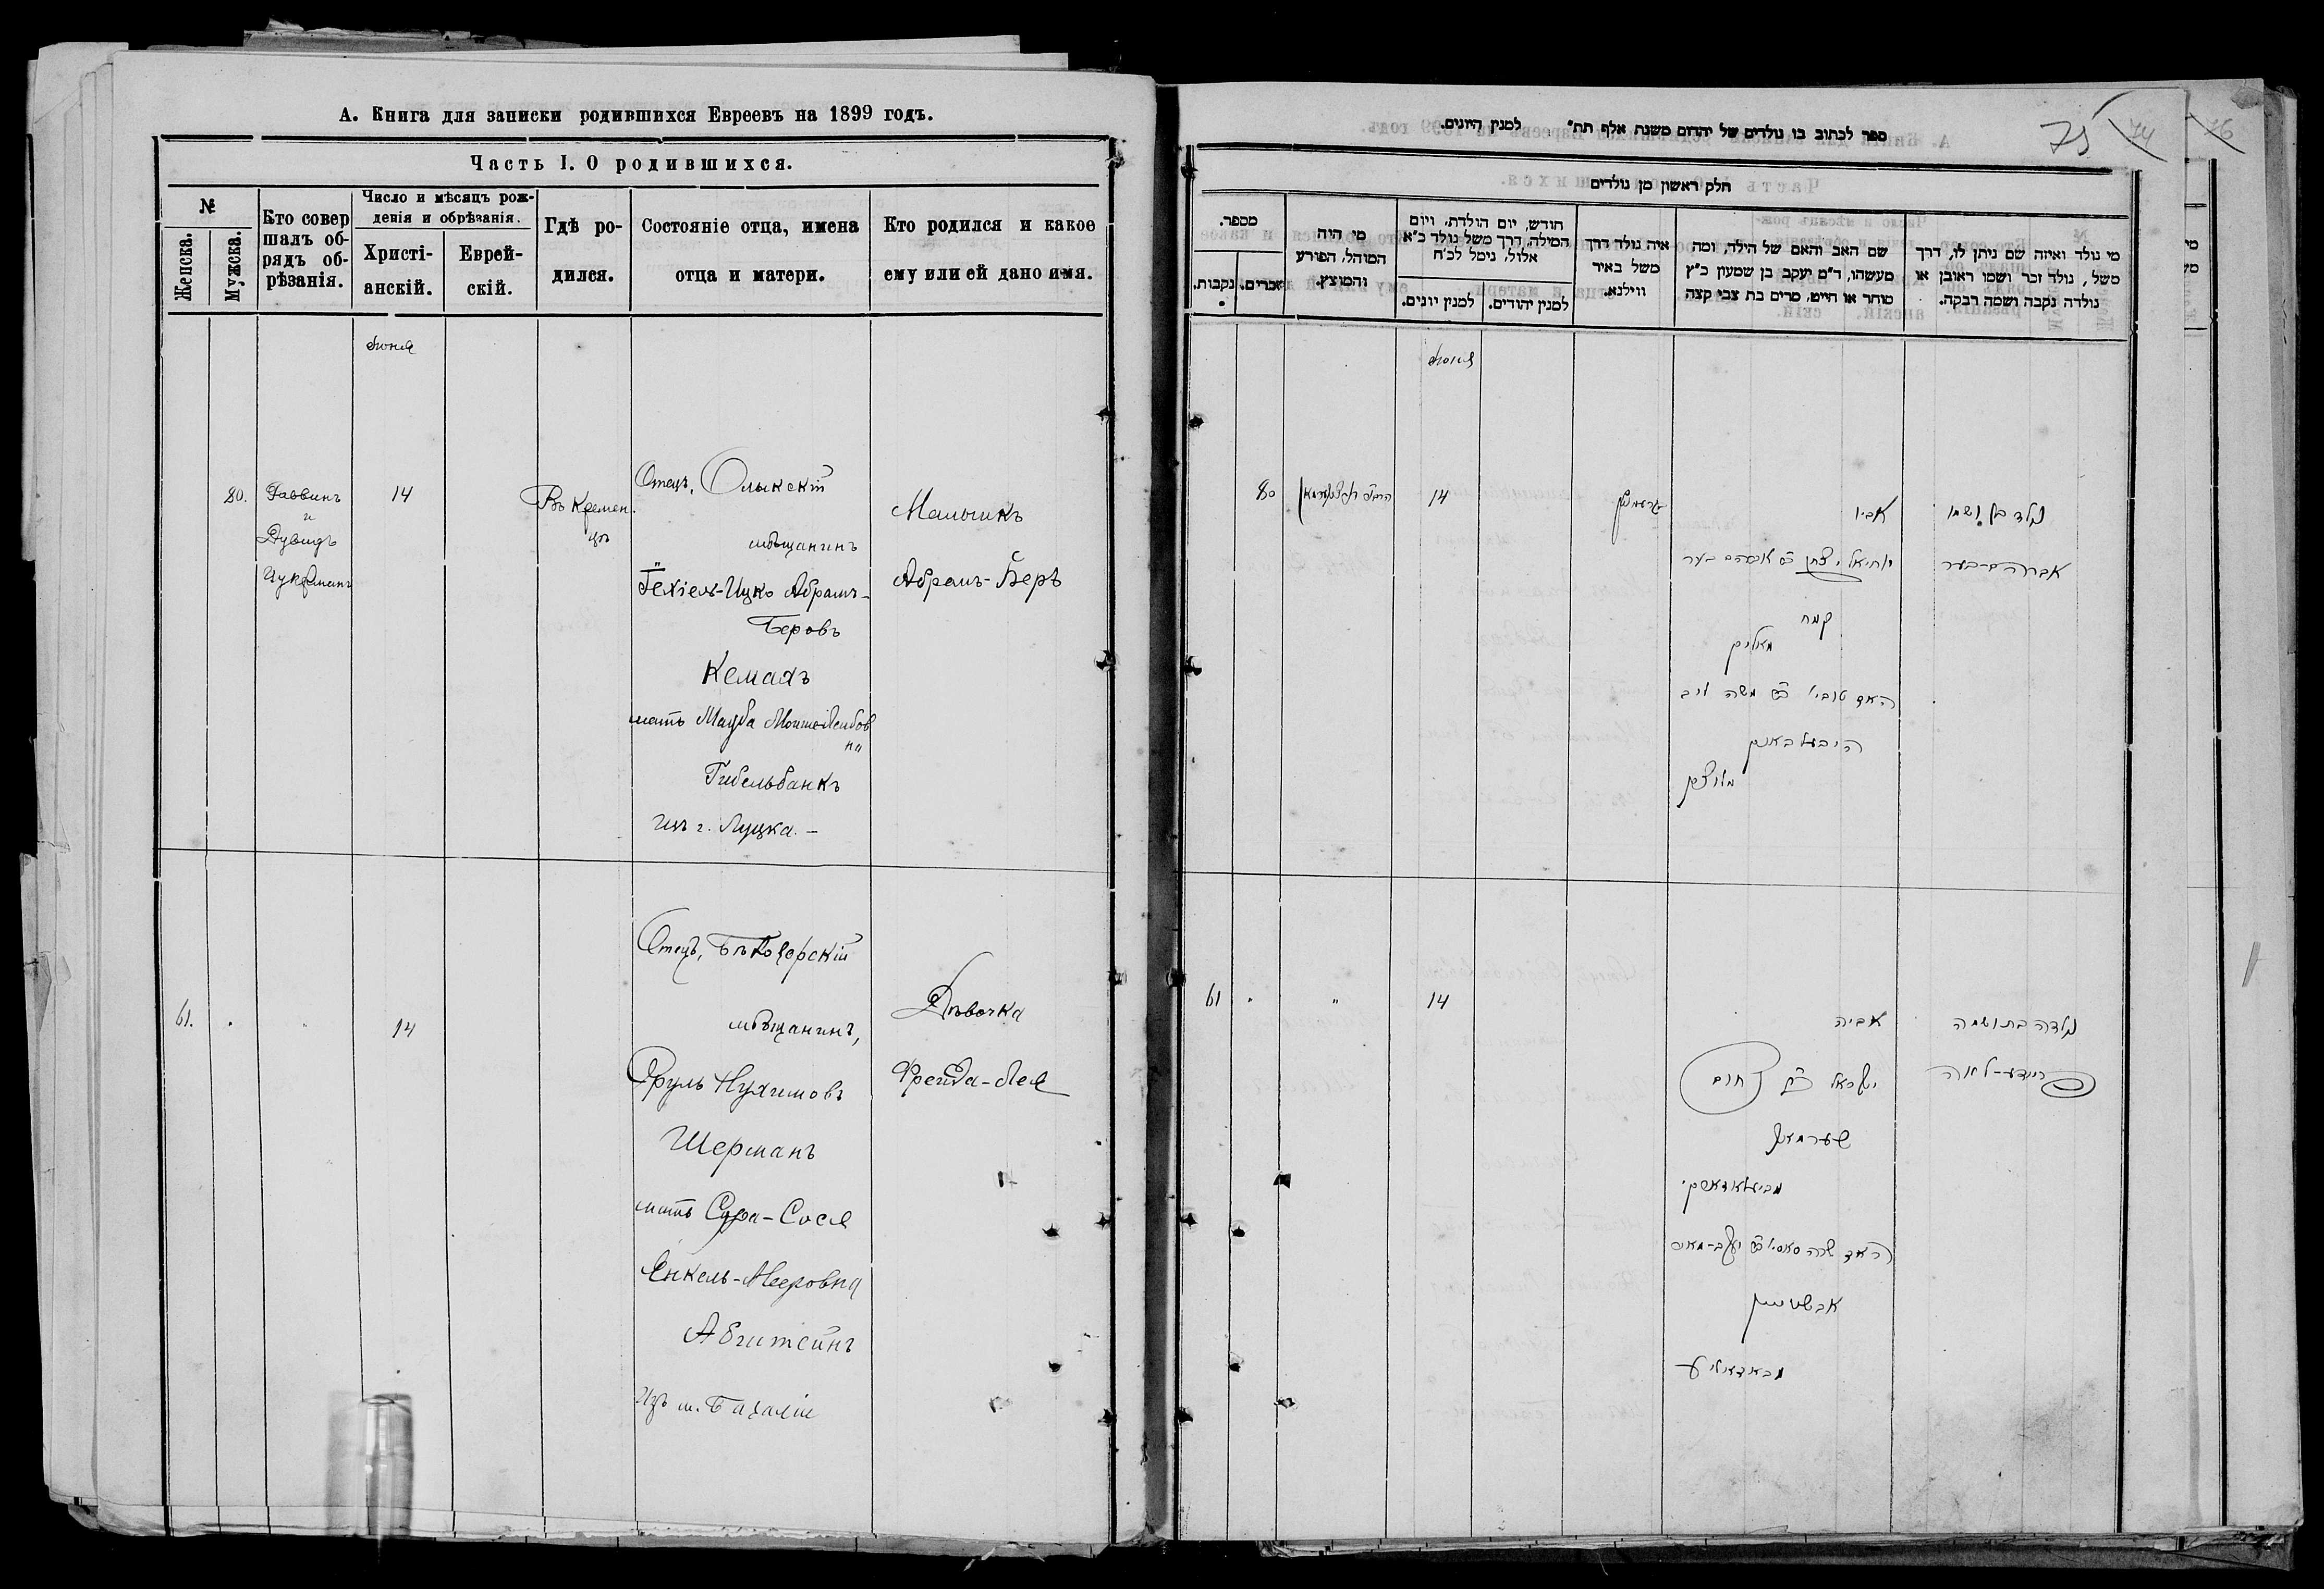 А. Книга для записки родившихся Евреевъ на 1899 годъ.
Часть I. О родившихся.
№
Женска.
Мужска.
Кто совер
шалъ об-
рядъ об-
рѣзанія.
Число и мѣсяцъ рож-
денія и обрѣзанія.
Христі-
анскій.
Еврей-
скій.
Гдѣ ро-
дился.
Состояніе отца, имена
отца и матери.
Кто родился и какое
ему или ей дано имя.
Іюня
80.
Раввинъ
и
Дувидъ
Цукерманъ
14
Въ Кремен
цѣ
Отецъ, Олыкскій
мѣщанинъ
Іехіель-Ицко Абрамъ-
Беровъ
Кемахъ
мать Мошко-Лейбов
на
Гибельбанкъ
Изъ г. Луцка. -
Мальчикъ
Абрамъ-Беръ
61.
"
14
Отецъ, Бѣлозорскій
мѣщанинъ,
Сруль Нухимовъ
Шерманъ
мать Сура-Сося
Енкель-Мееровна
Абштейнъ
Изъ м. Базаліи
Дѣвочка
Фрейда-Лея
ספר לכתוב בו נולדים של יהודים משנת אלף תת״ למנין היונים.
75 74
76
חלק ראשון מן נולדים
מספר.
נקבות.
זכרים.
מי היה
המוהל, הפורע
והמוצץ.
חודש, יום הולדת, ויום
המילה, דרך משל נולד כ״א
אלול, נימל לכ״ח
למנין יונים.
למנין יהודים.
איה נולד דרך
משל באיר
ווילנא.
שם האב והאם של הילד, ומה
מעשהו, ד״מ יעקב בן שמעון כ״ץ
סוחר או חייט, מרים בת צבי קצה
מי נולד ואיזה שם ניתן לו, דרך
משל, נולד זכר ושמו ראובן או
נולדה נקבה ושמה רבקה.
Іюня
80
14
אביו
יחיאל יצחק ב״ר אברהם בער
קמח
האם טובי׳ ב״ר משה ליב
היבעלבאנק
מלוצק
נולד בן ושמו
אברהם-בער
61
"
14
אביה
ישראל ב״ר נחום
שערמאן
האם שרה סאסי׳ ב״ר יעקב-מאיר
אבשטיין
נולדה בת ושמה
פריידע-לאה